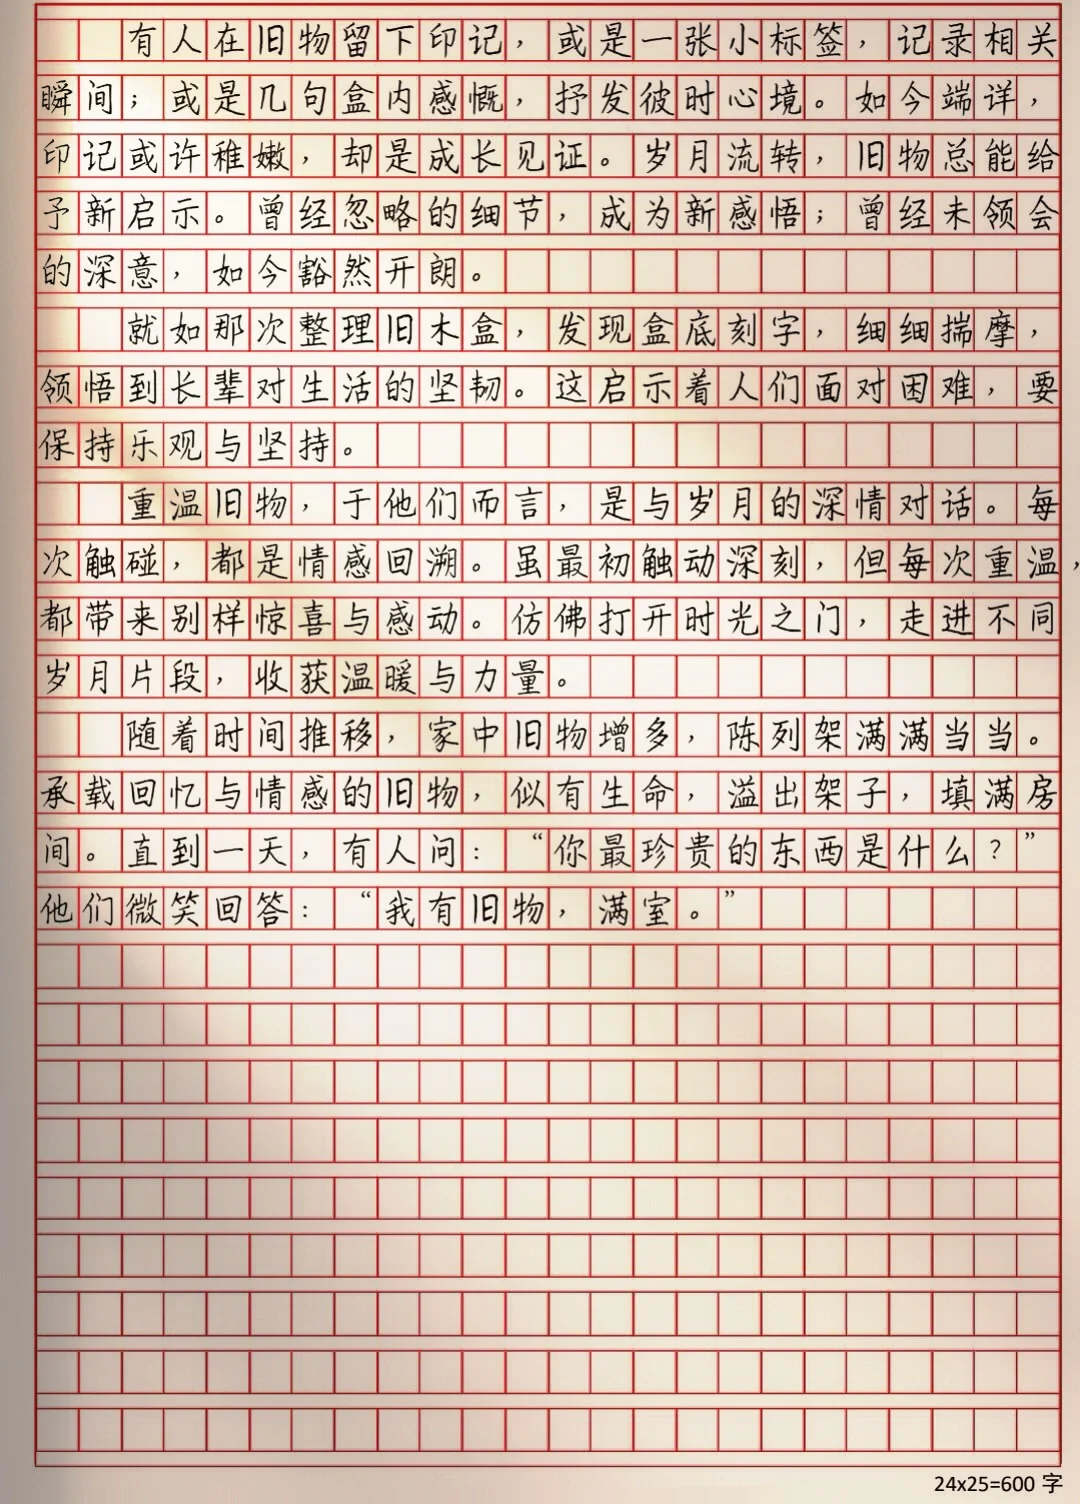 有人在旧物留下印记，或是一张小标签，记录相关
瞬间；或是几句盒内感慨，抒发彼时心境。如今端详，
印记或许稚嫩，却是成长见证。岁月流转，旧物总能给
予新启示。曾经忽略的细节，成为新感悟；曾经未领会
的深意，如今豁然开朗。
就如那次整理旧木盒，发现盒底刻字，细细揣摩，
领悟到长辈对生活的坚韧。这启示着人们面对困难，要
保持乐观与坚持。
重温旧物，于他们而言，是与岁月的深情对话。每
次触碰，都是情感回溯。虽最初触动深刻，但每次重温，
都带来别样惊喜与感动。仿佛打开时光之门，走进不同
岁月片段，收获温暖与力量。
随着时间推移，家中旧物增多，陈列架满满当当。
承载回忆与情感的旧物，似有生命，溢出架子，填满房
间。直到一天，有人问：“你最珍贵的东西是什么？”
他们微笑回答：“我有旧物，满室。”
24x25=600 字